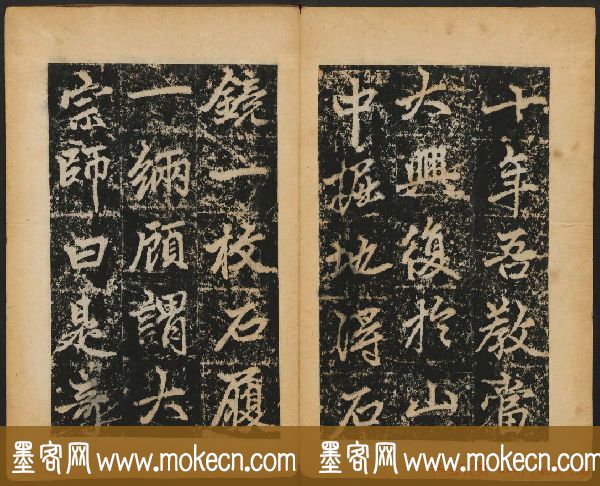 十年吾教當
大興復於山
中掘地得石
鏡一枚石履
一緉顧謂大
宗師曰是
墨客网 www.mokecn.com
墨客网 www.mokecn.com